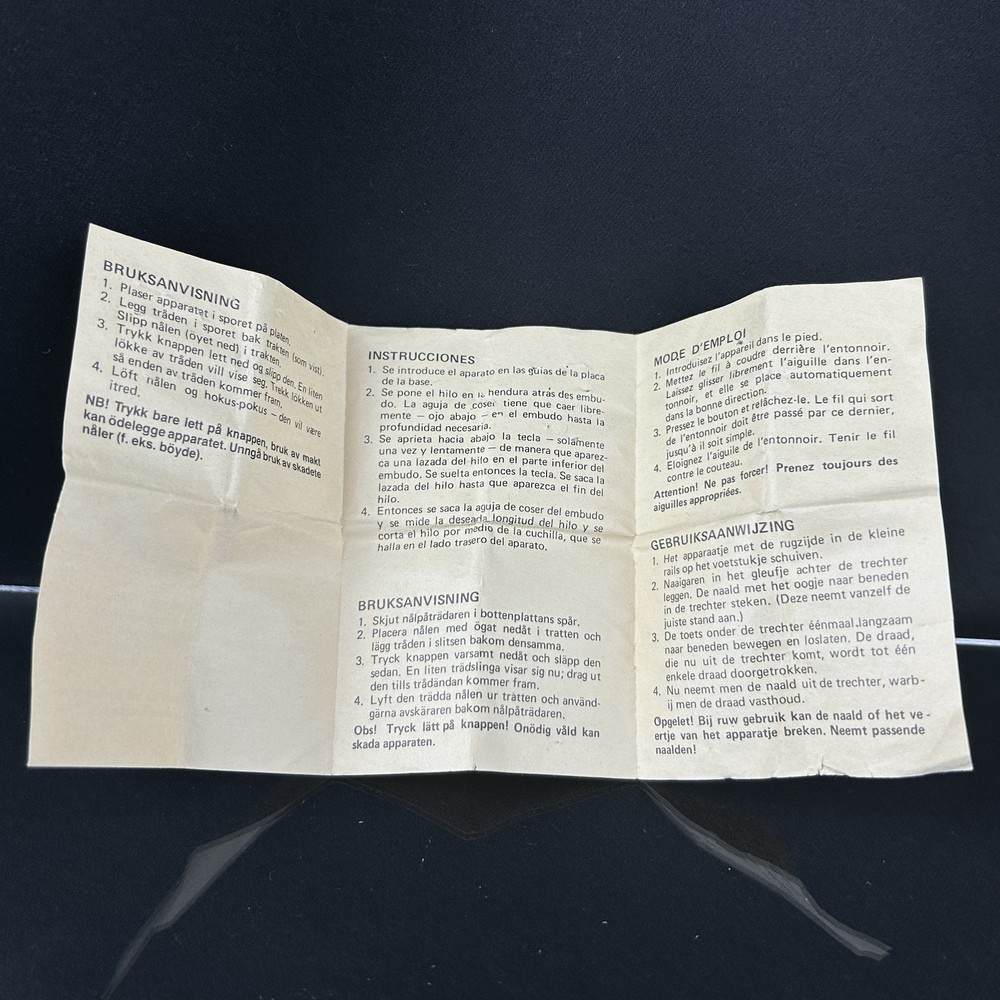 BRUKSANVISNING
1. Plaser apparatet i sporet på platen.
2. Legg tråden i sporet bak trakten (som vist).
Slipp nålen (öyet ned) i trakten.
3. Trykk knappen lett ned og slipp den. En liten
lökke av tråden vill vise seg. Trekk lökken ut
så enden av tråden kommer fram.
4. Löft nålen og hokus-pokus – den vil være
itred.
NB! Trykk bare lett på knappen, bruk av makt
kan ödelegge apparatet. Unngå bruk av skadete
nåler (f. eks. böyde).
INSTRUCCIONES
1. Se introduce el aparato en las guias de la placa
de la base.
2. Se pone el hilo en la hendura atrás des embu-
do. La aguja de coser tiene que caer libre-
mente – ojo abajo – en el embudo hasta la
profundidad necesaria.
3. Se aprieta hacia abajo la tecla – solamente
una vez y lentamente – de manera que aparez-
ca una lazada del hilo en el parte inferior del
embudo. Se suelta entonces la tecla. Se saca la
lazada del hilo hasta que aparezca el fin del
hilo.
4. Entonces se saca la aguja de coser del embudo
y se mide la deseada longitud del hilo y se
corta el hilo por medio de la cuchilla, que se
halla en el lado trasero del aparato.
BRUKSANVISNING
1. Skjut nålpåträdaren i bottenplattans spår.
2. Placera nålen med ögat nedåt i tratten och
lägg tråden i slitsen bakom densamma.
3. Tryck knappen varsamt nedåt och släpp den
sedan. En liten trädslinga visar sig nu; drag ut
den tills trådändan kommer fram.
4. Lyft den trädda nålen ur tratten och använd-
gärna avskäraren bakom nålpåträdaren.
Obs! Tryck lätt på knappen! Onödig våld kan
skada apparaten.
MODE D'EMPLOI
1. Introduisez l'appareil dans le pied.
2. Mettez le fil à coudre derrière l'entonnoir.
Laissez glisser librement l'aiguille dans l'en-
tonnoir, et elle se place automatiquement
dans la bonne direction.
3. Pressez le bouton et relâchez-le. Le fil qui sort
de l'entonnoir doit être passé par ce dernier,
jusqu'à il soit simple.
4. Eloignez l'aiguile de l'entonnoir. Tenir le fil
contre le couteau.
Attention! Ne pas forcer! Prenez toujours des
aiguilles appropriées.
GEBRUIKSAANWIJZING
1. Het apparaatje met de rugzijde in de kleine
rails op het voetstukje schuiven.
2. Naaigaren in het gleufje achter de trechter
leggen. De naald met het oogje naar beneden
in de trechter steken. (Deze neemt vanzelf de
juiste stand aan.)
3. De toets onder de trechter éénmaal langzaam
naar beneden bewegen en loslaten. De draad,
die nu uit de trechter komt, wordt tot één
enkele draad doorgetrokken.
4. Nu neemt men de naald uit de trechter, warb-
ij men de draad vasthoud.
Opgelet! Bij ruw gebruik kan de naald of het ve-
ertje van het apparatje breken. Neemt passende
naalden!